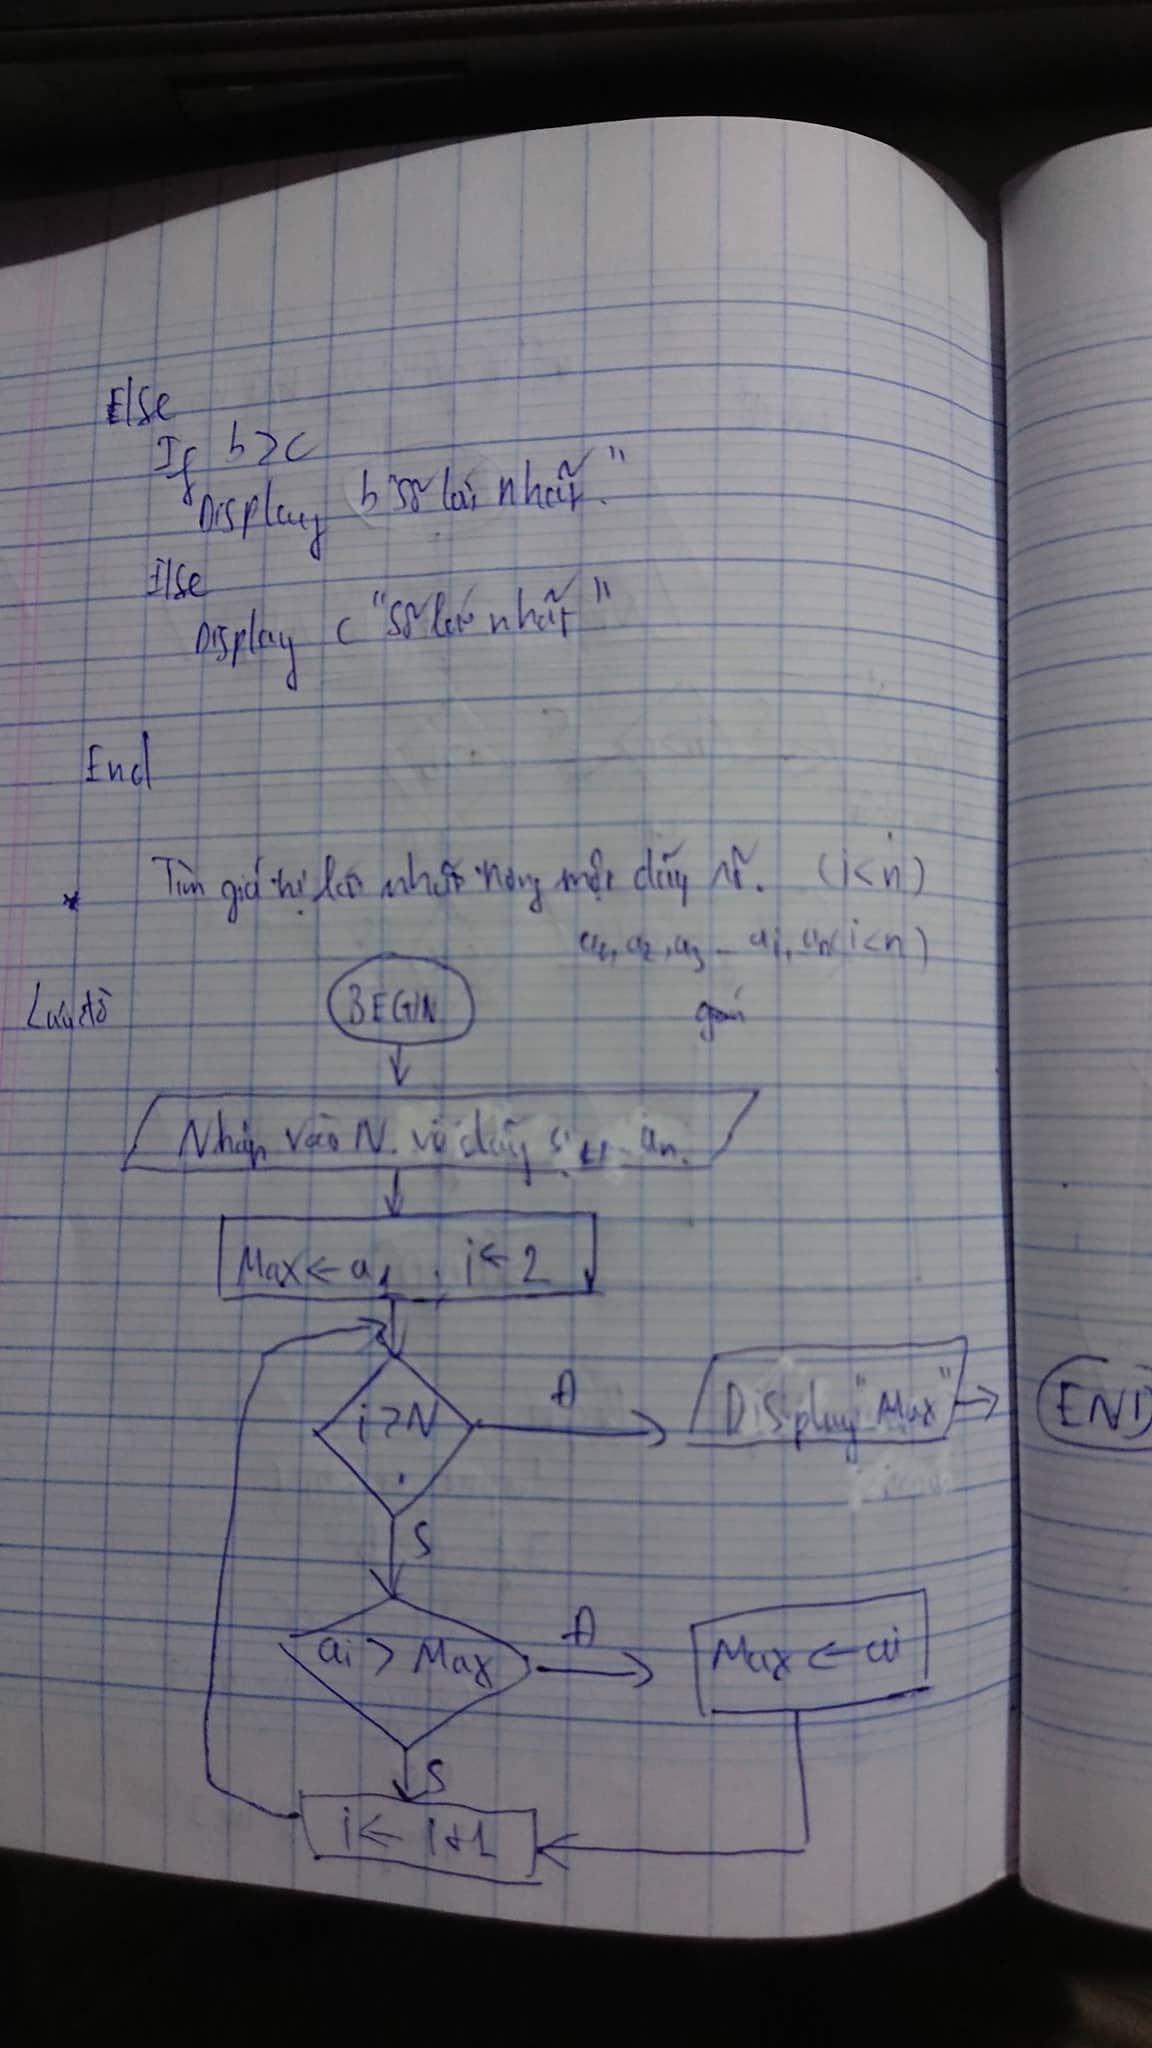 Else
If b>c
Display b "số lớn nhất."
Else
Display c "Số lớn nhất"
End
* Tìm giá trị lớn nhất trong một dãy số. (i<n)
a1, a2, a3 - ai, an (i<n)
Lưu đồ
BEGIN
Nhập vào N. và dãy an.
Max ← a1, i ← 2
i>N
Đ
Display "Max"
END
S
ai > Max
Đ
Max ← ai
S
i ← i+1